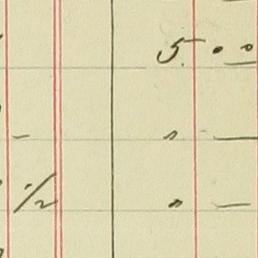 5 • 0
- " —
1/2 " —